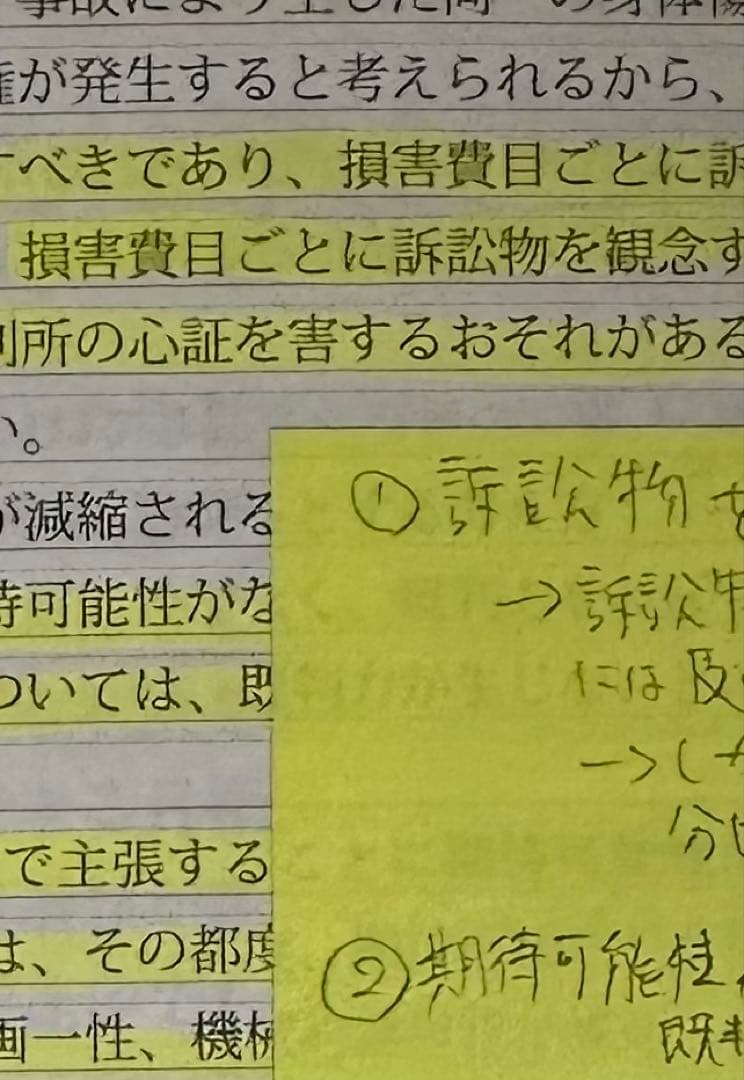 事故により生じた同一の身体傷
権が発生すると考えられるから、
すべきであり、損害費目ごとに訴
損害費目ごとに訴訟物を観念す
判所の心証を害するおそれがある
い。
が減縮される
待可能性がな
ついては、既
で主張する
は、その都度
画一性、機械
① 訴訟物を
→訴訟物
には及
→しか
分
② 期待可能性
既判